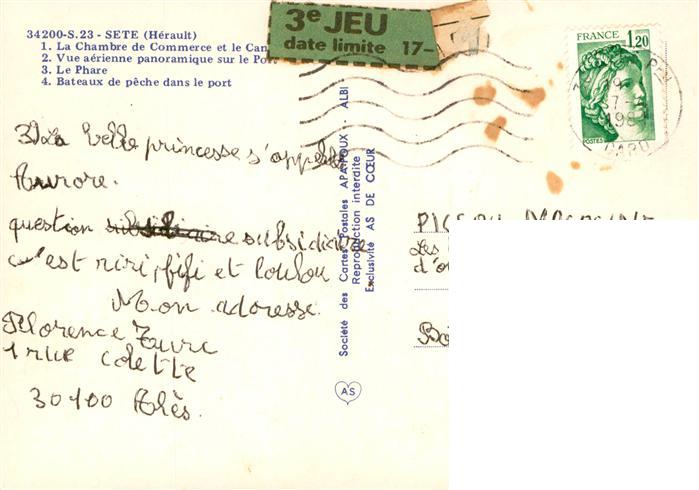 34200-S.23 - SETE (Hérault)
1. La Chambre de Commerce et le Can
2. Vue aérienne panoramique sur le Port
3. Le Phare
4. Bateaux de pêche dans le port
3e JEU
date limite 17-
FRANCE 1,20
POSTES
GARD
3) La belle princesse s'appelle
Aurore.
question subsidiaire
c'est riri, fifi et loulou
Mon adresse
Florence
1 rue Colette
30100 Alès.
Société des Cartes Postales APA-POUX - ALBI
Reproduction interdite
Exclusivité AS DE CŒUR
AS
Les
d'o